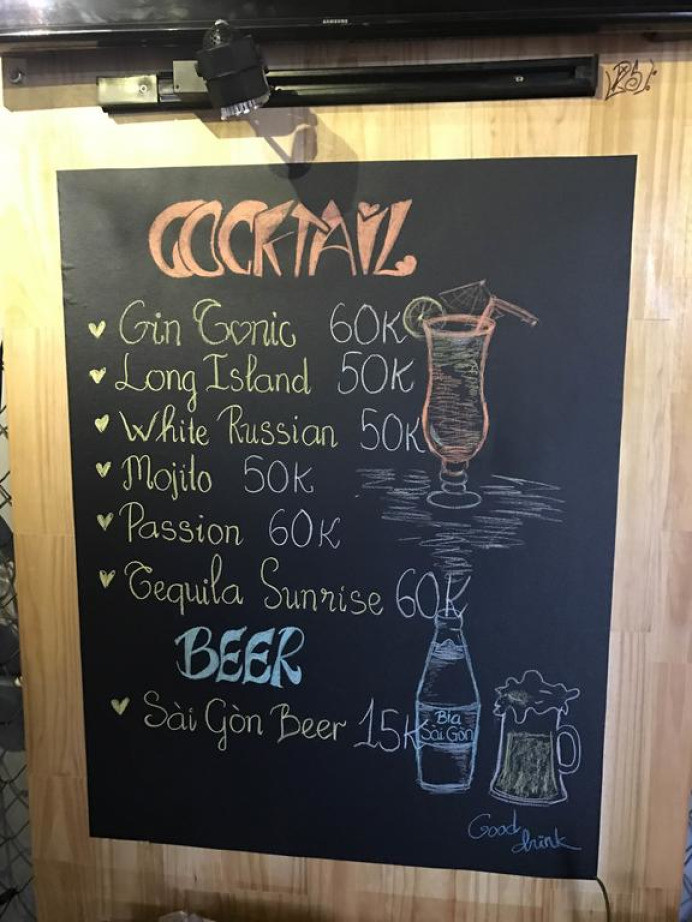 SAMSUNG
COCKTAIL
Gin Tonic 60K
Long Island 50K
White Russian 50K
Mojito 50K
Passion 60K
Tequila Sunrise 60K
BEER
Sài Gòn Beer 15K
Bia
Sài Gòn
Good
drink